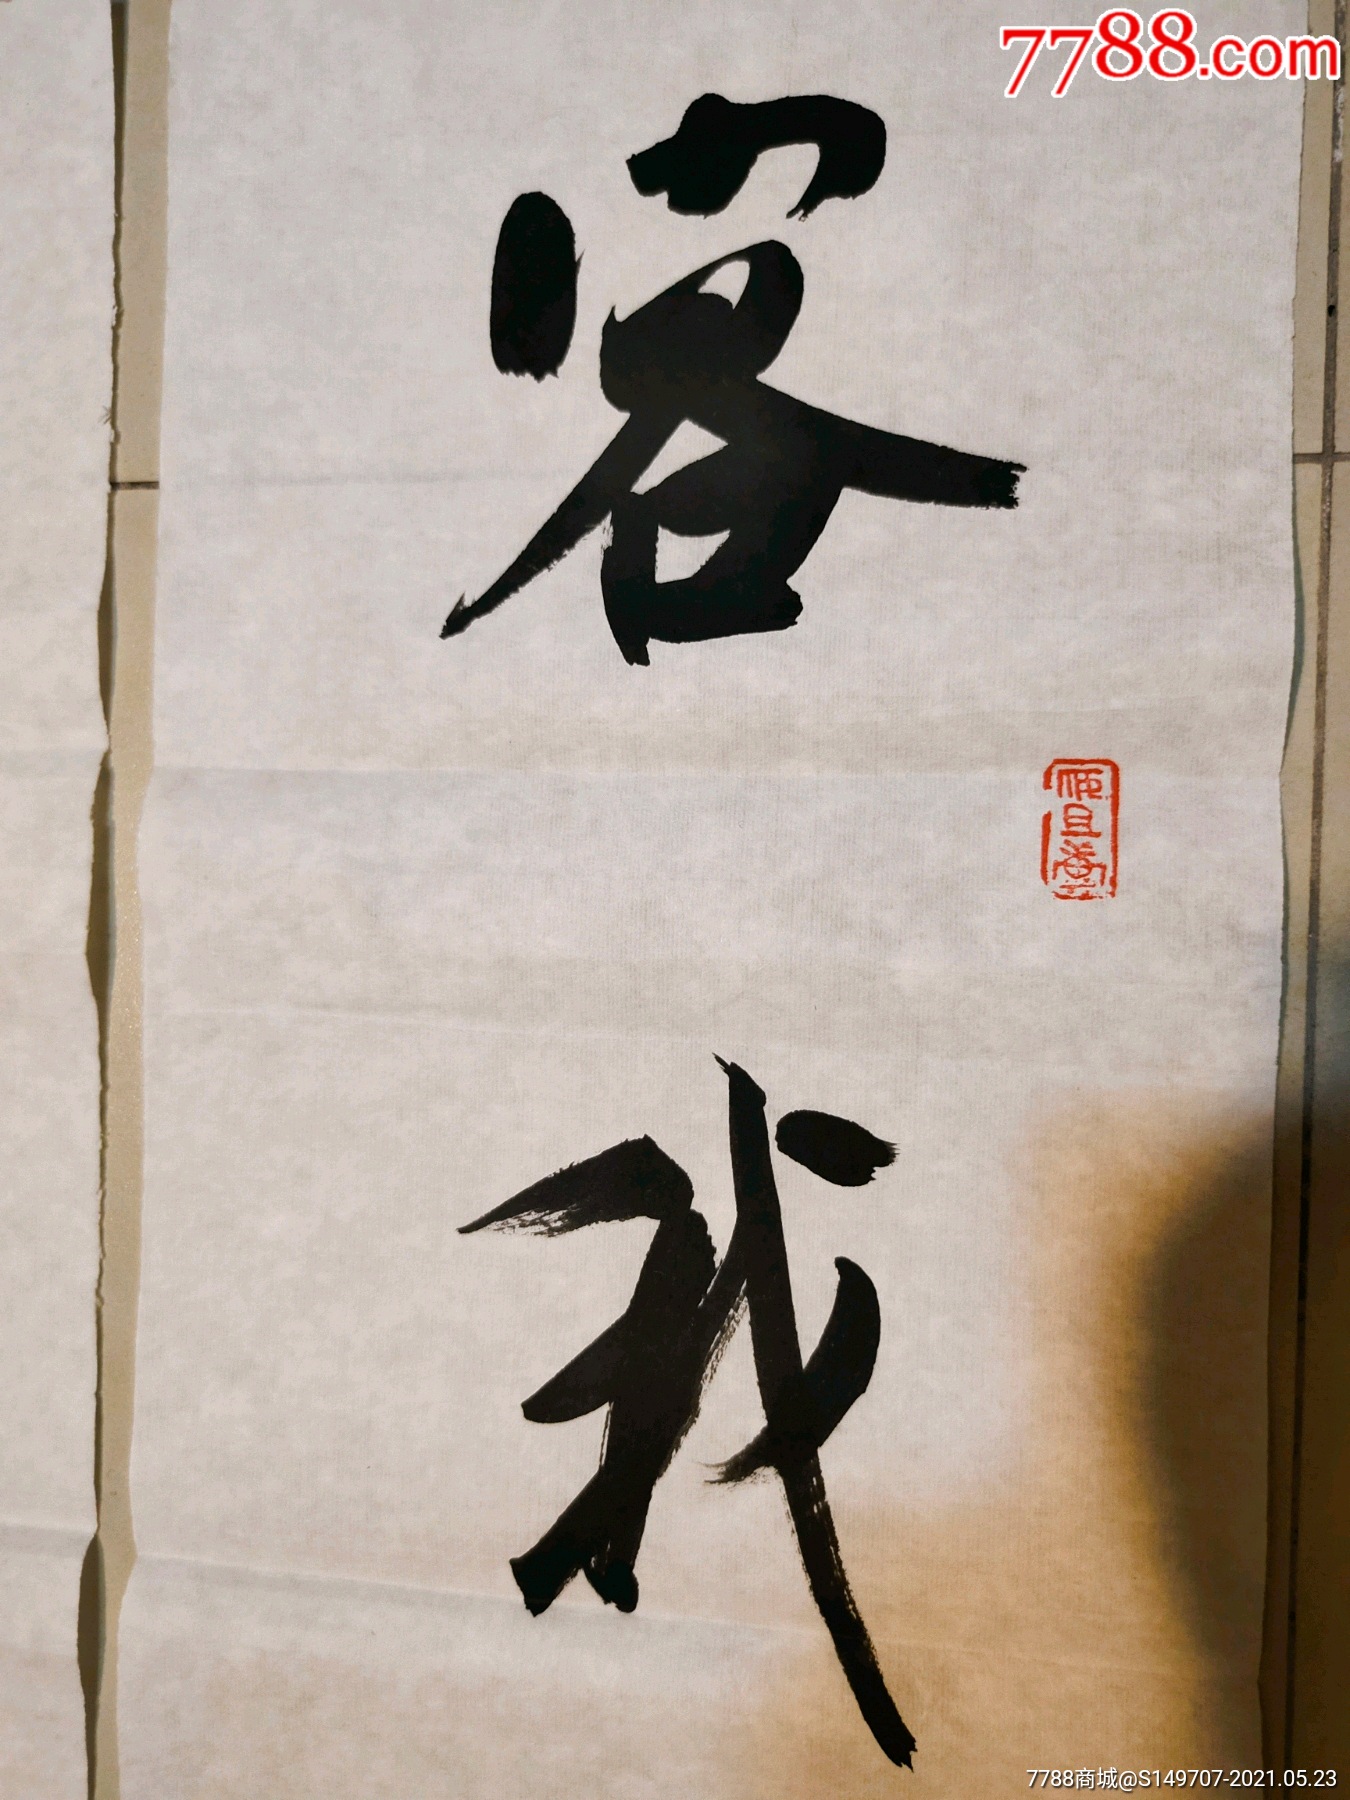 7788.com
容
我
7788商城@S149707-2021.05.23